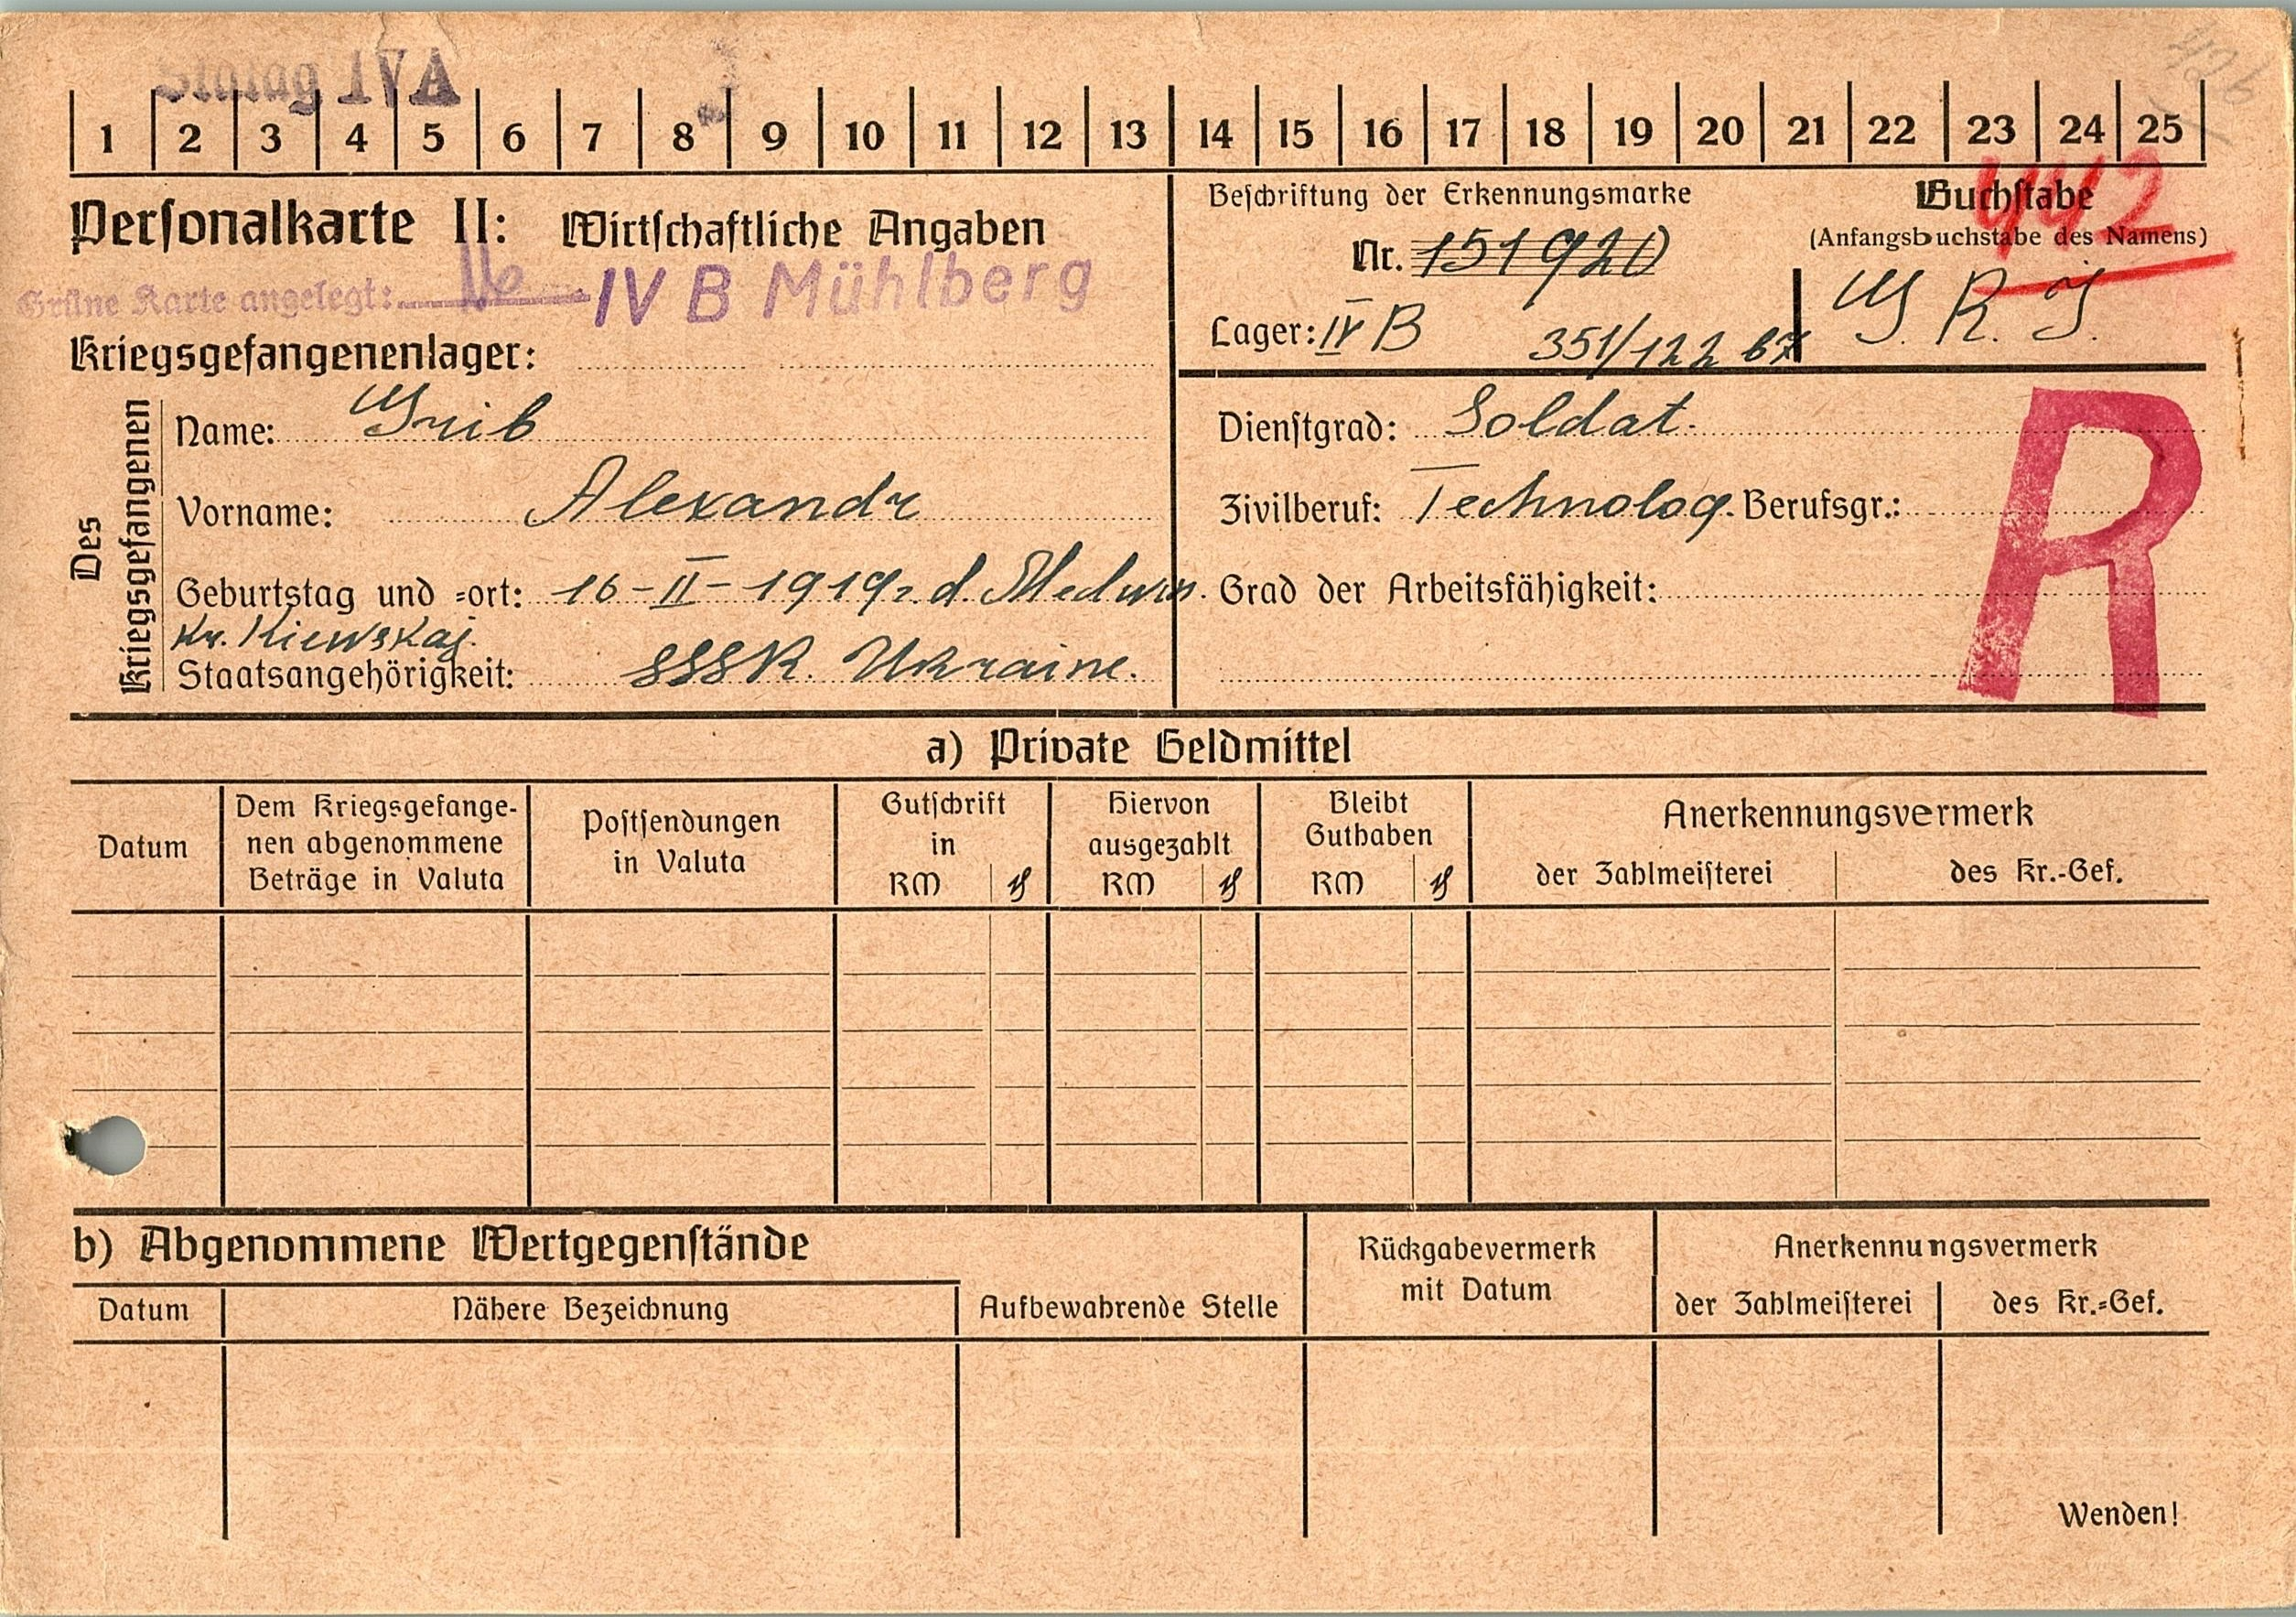 Stalag IVA
1 2 3 4 5 6 7 8 9 10 11 12 13 14 15 16 17 18 19 20 21 22 23 24 25
442
Personalkarte II: Wirtschaftliche Angaben
Grüne Karte angelegt: IV B Mühlberg
Kriegsgefangenenlager:
Beschriftung der Erkennungsmarke
Nr. 151920
Lager: IV B 351/122
Buchstabe
(Anfangsbuchstabe des Namens)
G. R. j.
Des Kriegsgefangenen
Name: Grib
Vorname: Alexandr
Geburtstag und -ort: 16-II-1919. d. Medwin.
Kr. Kiewskaj.
Staatsangehörigkeit: SSSR. Ukraine.
Dienstgrad: Soldat.
Zivilberuf: Technolog. Berufsgr.:
Grad der Arbeitsfähigkeit:
R
a) Private Geldmittel
Datum
Dem Kriegsgefange-
nen abgenommene
Beträge in Valuta
Postsendungen
in Valuta
Gutschrift
in
RM ₰
Hiervon
ausgezahlt
RM ₰
Bleibt
Guthaben
RM ₰
Anerkennungsvermerk
der Zahlmeisterei
des Kr.-Gef.
b) Abgenommene Wertgegenstände
Datum
Nähere Bezeichnung
Aufbewahrende Stelle
Rückgabevermerk
mit Datum
Anerkennungsvermerk
der Zahlmeisterei
des Kr.-Gef.
Wenden!